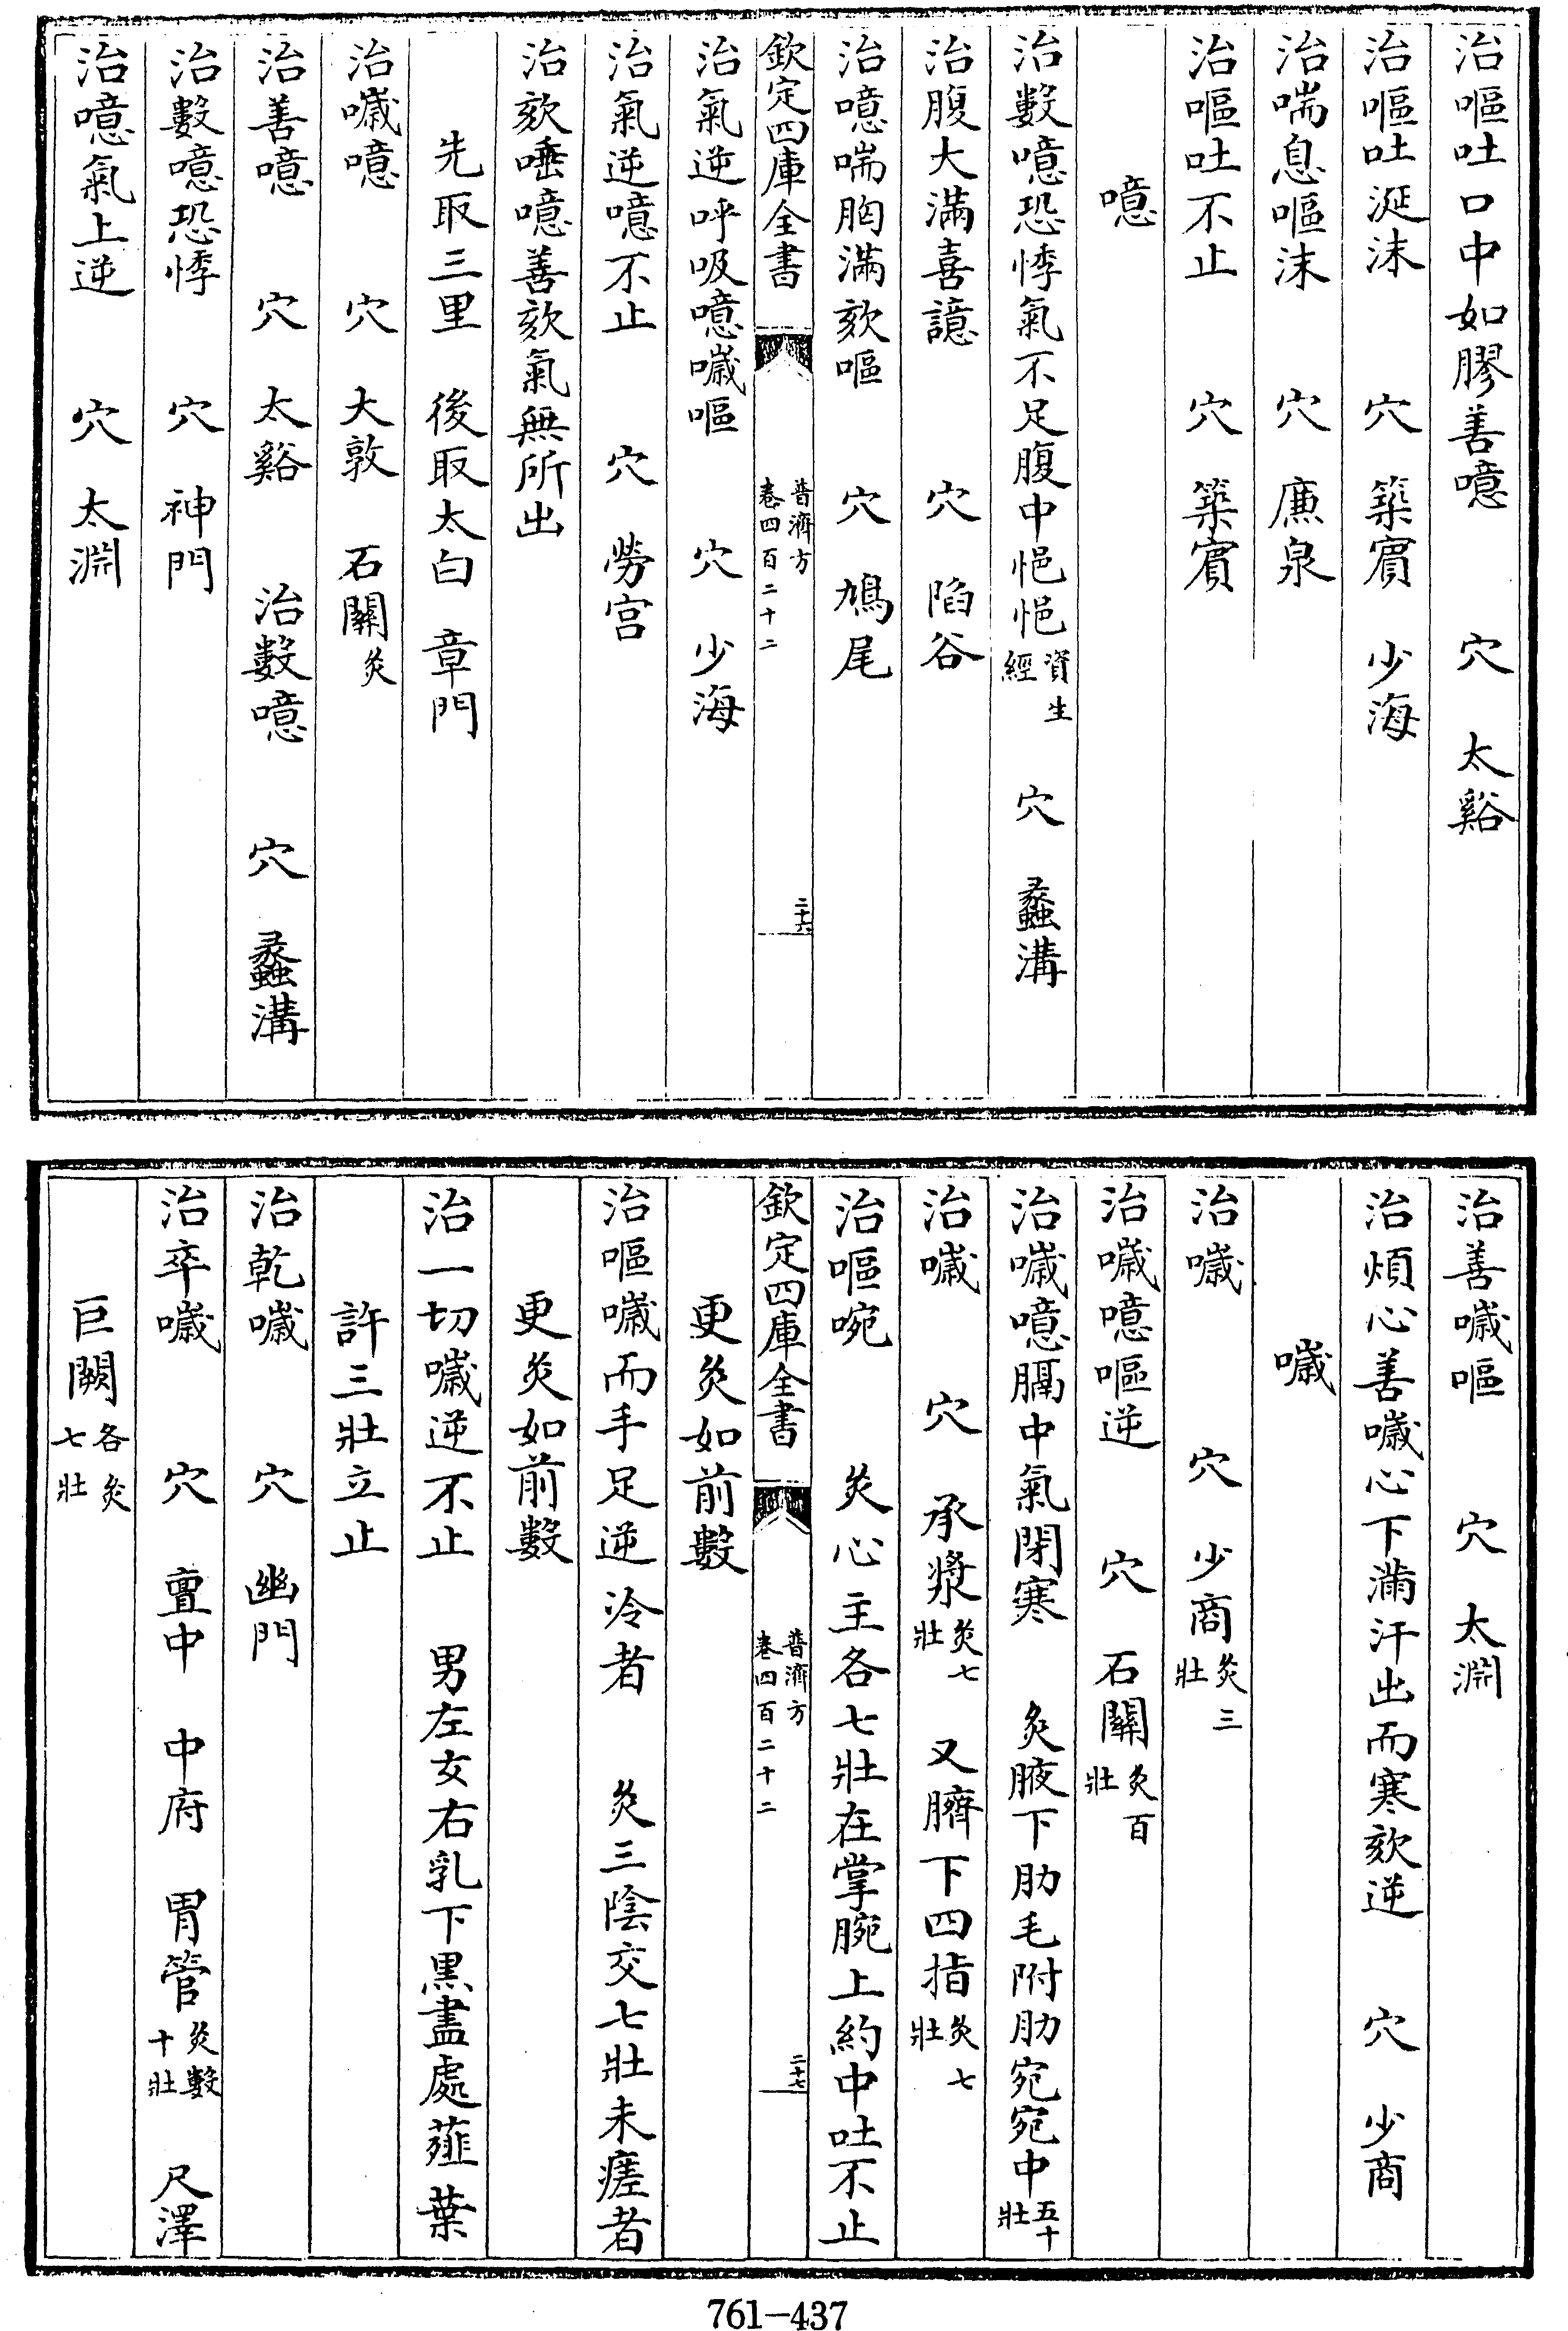 治嘔吐口中如膠善噫　穴　太谿
治嘔吐涎沫　穴　築賔　少海
治喘息嘔沫　穴　廉泉
治嘔吐不止　穴　築賔
噫
治數噫恐悸氣不足腹中悒悒資生經　穴　蠡溝
治腹大滿喜譩　穴　陷谷
治噫喘胸滿欬嘔　穴　鳩尾
欽定四庫全書　普濟方卷四百二十二　二十六
治氣逆呼吸噫噦嘔　穴　少海
治氣逆噫不止　穴　勞宫
治欬唾噫善欬氣無所出
先取三里　後取太白　章門
治噦噫　穴　大敦　石關灸
治善噫　穴　太谿　治數噫　穴　蠡溝
治數噫恐悸　穴　神門
治噫氣上逆　穴　太淵
治善噦嘔　穴　太淵
治煩心善噦心下滿汗出而寒欬逆　穴　少商
噦
治噦　穴　少商灸三壯
治噦噫嘔逆　穴　石關灸百壯
治噦噫膈中氣閉寒　灸腋下肋毛附肋宛宛中五十壯
治噦　穴　承漿灸七壯　又臍下四指灸七壯
治嘔啘　灸心主各七壯在掌腕上約中吐不止
欽定四庫全書　普濟方卷四百二十二　二十七
更灸如前數
治嘔噦而手足逆冷者　灸三陰交七壯未瘥者
更灸如前數
治一切噦逆不止　男左女右乳下黒盡處薤葉
許三壯立止
治乾噦　穴　幽門
治卒噦　穴　亶中　中府　胃管灸數十壯　尺澤
巨闕各灸七壯
761-437